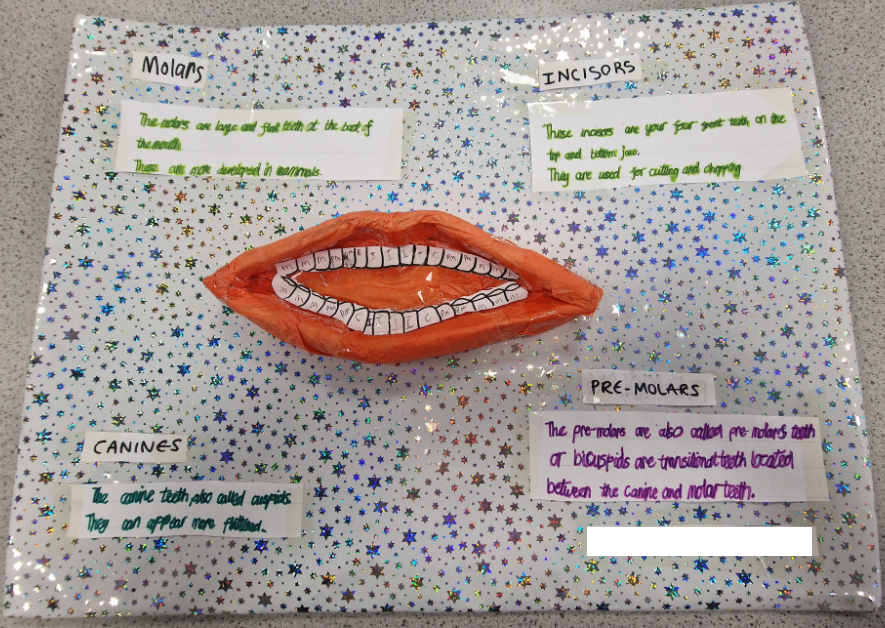 Molars
The molars are large and flat teeth at the back of
the mouth.
These are more developed in mammals.
INCISORS
These incisors are your four front teeth on the
top and bottom jaw.
They are used for cutting and chopping
PRE-MOLARS
The pre-molars are also called pre-molars teeth
or bicuspids are transitional teeth located
between the canine and molar teeth.
CANINES
The canine teeth also called cuspids.
They can appear more flattened.